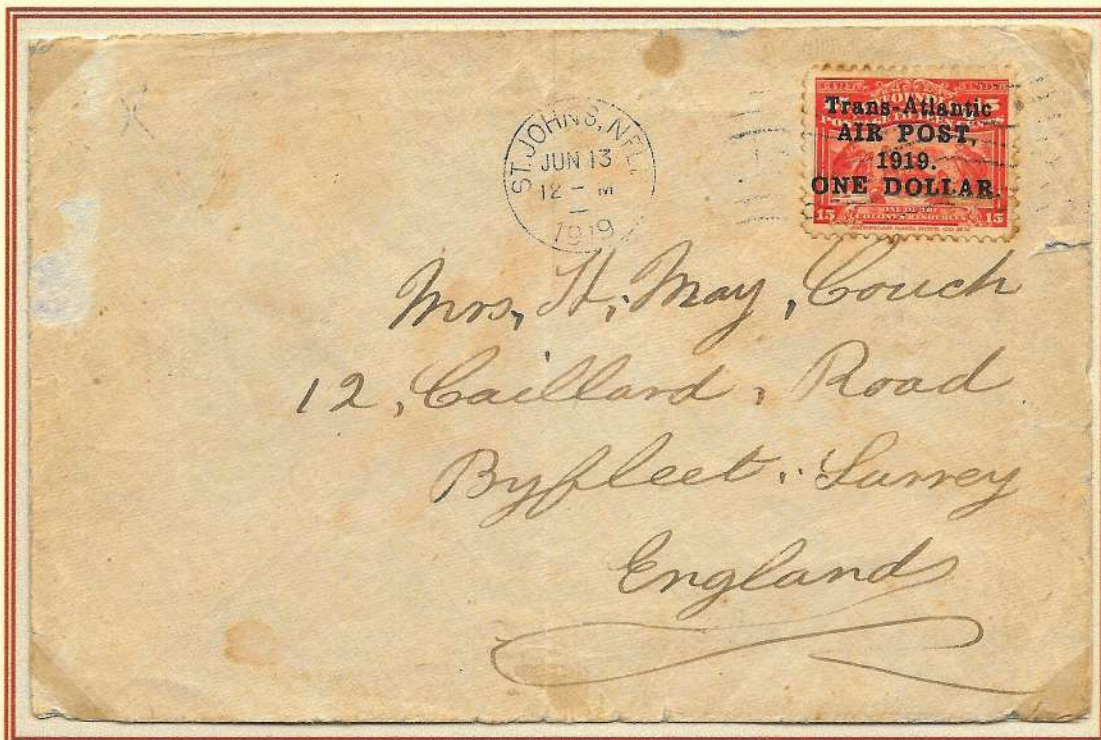 ST. JOHN'S, NFL.
JUN 13
12 - M
1919
Trans-Atlantic
AIR POST,
1919.
ONE DOLLAR.
15
ONE OF THE
COLONY'S RESOURCES
15
Mrs, H, May, Couch
12, Caillard, Road
Byfleet, Surrey
England